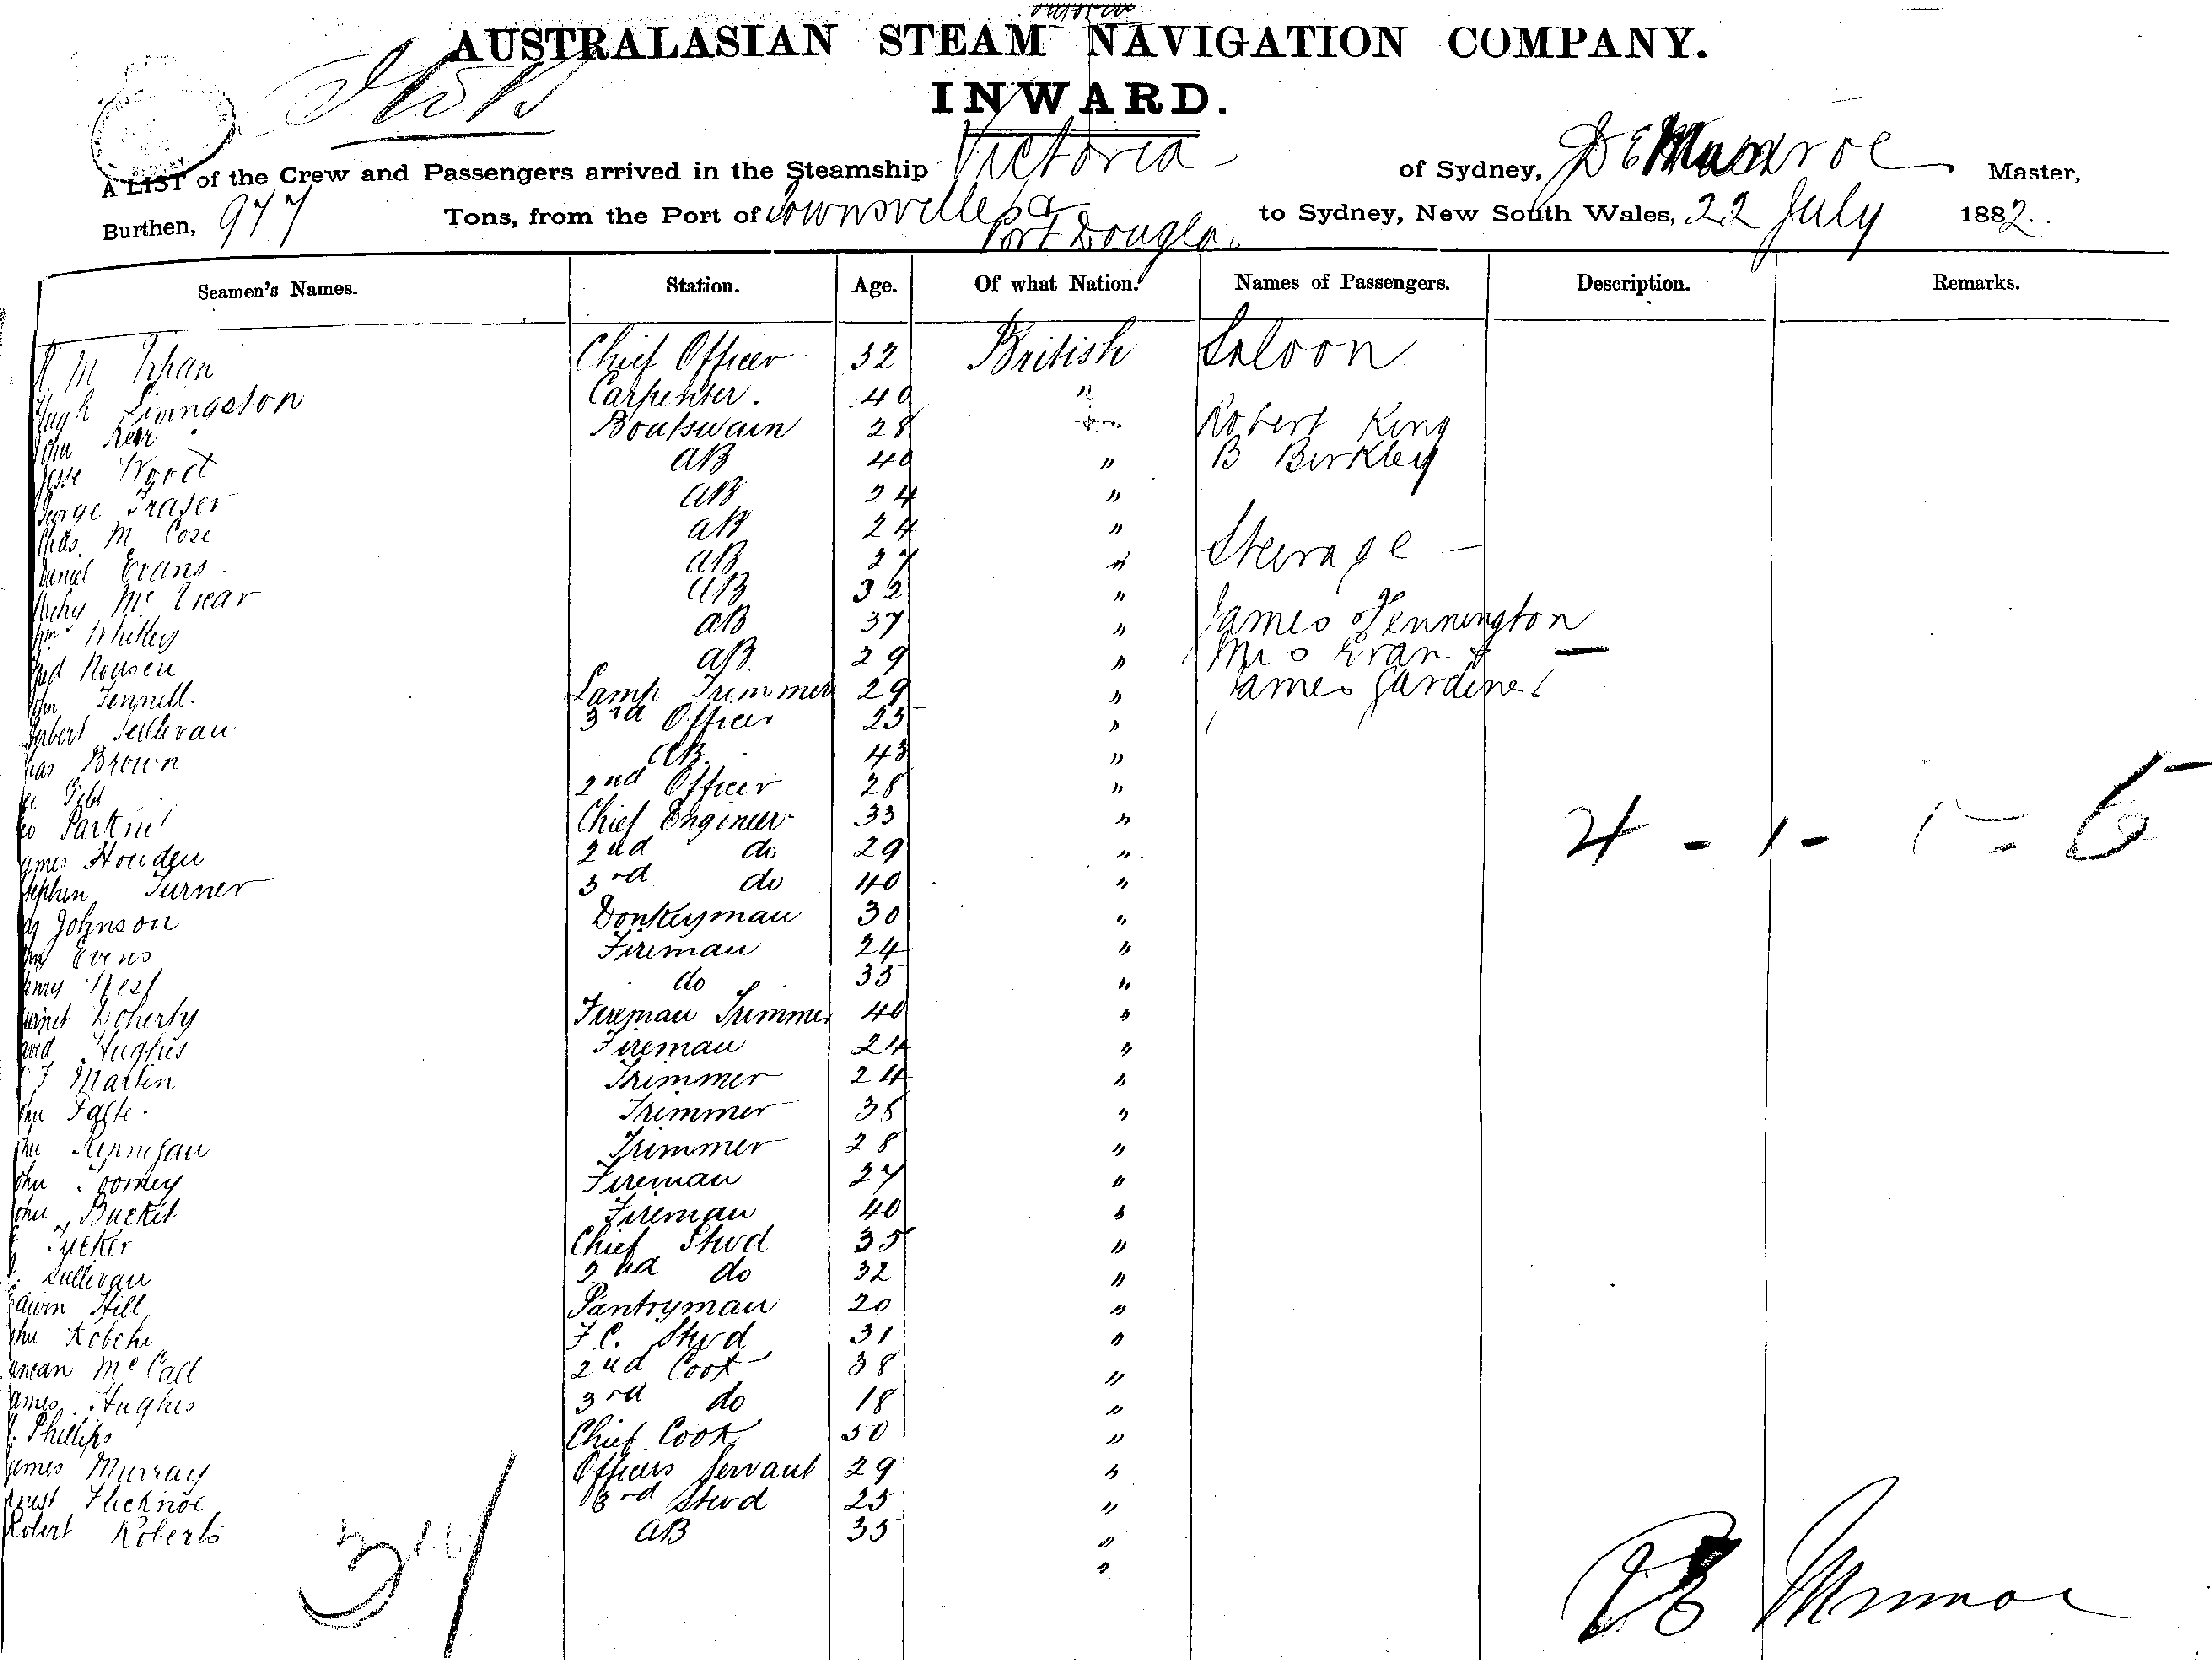 AUSTRALASIAN STEAM NAVIGATION COMPANY.
INWARD.
A LIST of the Crew and Passengers arrived in the Steamship Victoria of Sydney, D E Munroe Master,
Burthen, 977 Tons, from the Port of Townsville Port Douglas to Sydney, New South Wales, 22 July 1882.
Seamen's Names. Station. Age. Of what Nation. Names of Passengers. Description. Remarks.
R M Chief Officer 32 British Saloon
Hugh Livingston Carpenter. 40 "
John Kerr Boatswain 28 " Robert King
Jesse Wood AB 40 " B Birkley
George Fraser AB 24 "
Chas. M AB 24 "
Daniel Evans AB 27 " Steerage
Archy Mc AB 32 "
Wm Whitley AB 37 " James Fennington
Fred AB 29 " Mrs Evans
John Fennell. Lamp Trimmer 29 " James Gardiner
Herbert Sullivan 3rd Officer 25 "
Chas Brown AB. 43 "
2nd Officer 28 "
Geo Chief Engineer 33 " 4 - 1 - 1 = 6
James Houden 2nd do 29 "
Stephen Turner 3rd do 40 "
Johnson Donkeyman 30 "
Evens Fireman 24 "
Henry West do 35 "
Doherty Fireman Trimmer 40 "
David Hughes Fireman 24 "
Martin Trimmer 24 "
John Trimmer 35 "
John Kernigan Trimmer 28 "
John Toomey Fireman 27 "
John Bucket Fireman 40 "
Tucker Chief Stwd 35 "
Sullivan 2nd do 32 "
Edwin Hill Pantryman 20 "
John F.C. Stwd 31 "
Duncan Mc Call 2nd Cook 38 "
James Hughes 3rd do 18 "
Phillips Chief Cook 50 "
James Murray Officers Servant 29 "
Ernest Flecknoe 3rd Stwd 25 "
Robert Roberts AB 35 "
"
D E Munroe